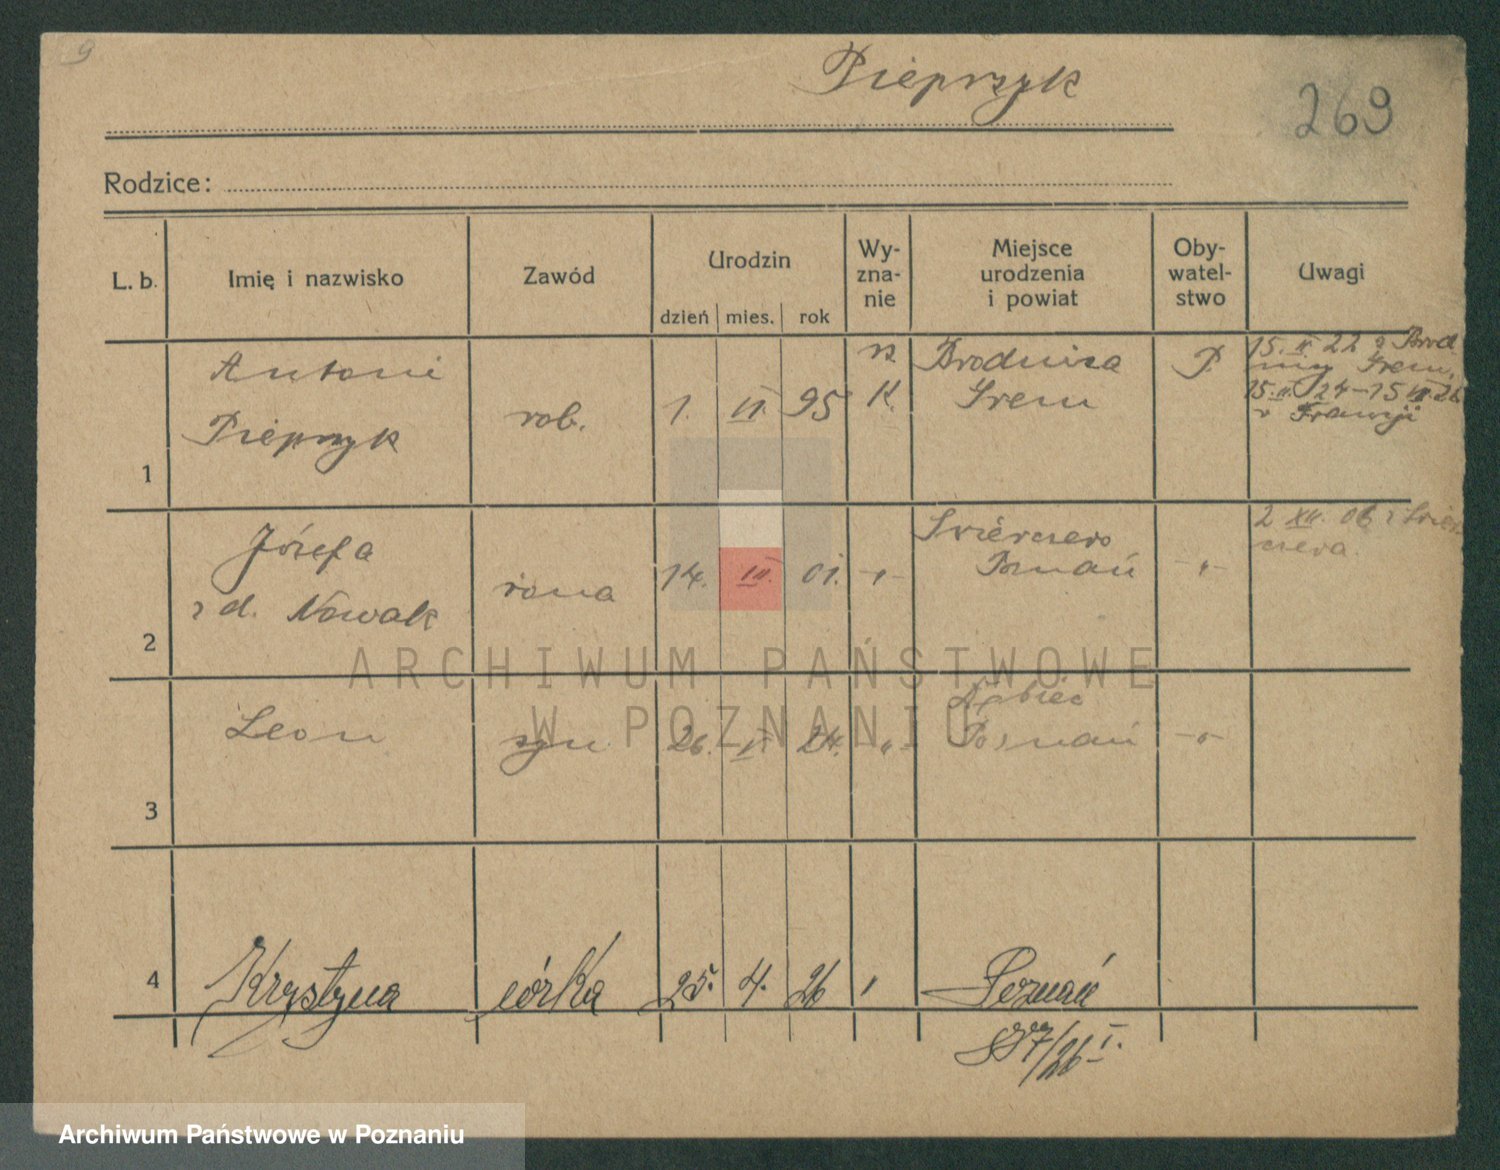 9
Pieprzyk
269
Rodzice:
L. b.
Imię i nazwisko
Zawód
Urodzin
dzień mies. rok
Wy-
zna-
nie
Miejsce
urodzenia
i powiat
Oby-
watel-
stwo
Uwagi
1
Antoni
Pieprzyk
rob.
1. VI. 95
R
K.
Brodnica
Śrem
P.
15. 22 z Brod
nicy Śrem,
15. 24-15 26
v Francji
2
Józefa
z d. Nowak
żona
14. III. 01.
-"-
Świerczewo
Poznań
-"-
2 XII. 06 z Świer
czewa.
3
Leon
syn
26. 24.
"
Dębiec
Poznań
-"-
4
Krystyna
córka
25. 4. 26
"
Poznań
887/26 I.
ARCHIWUM PAŃSTWOWE
W POZNANIU
Archiwum Państwowe w Poznaniu